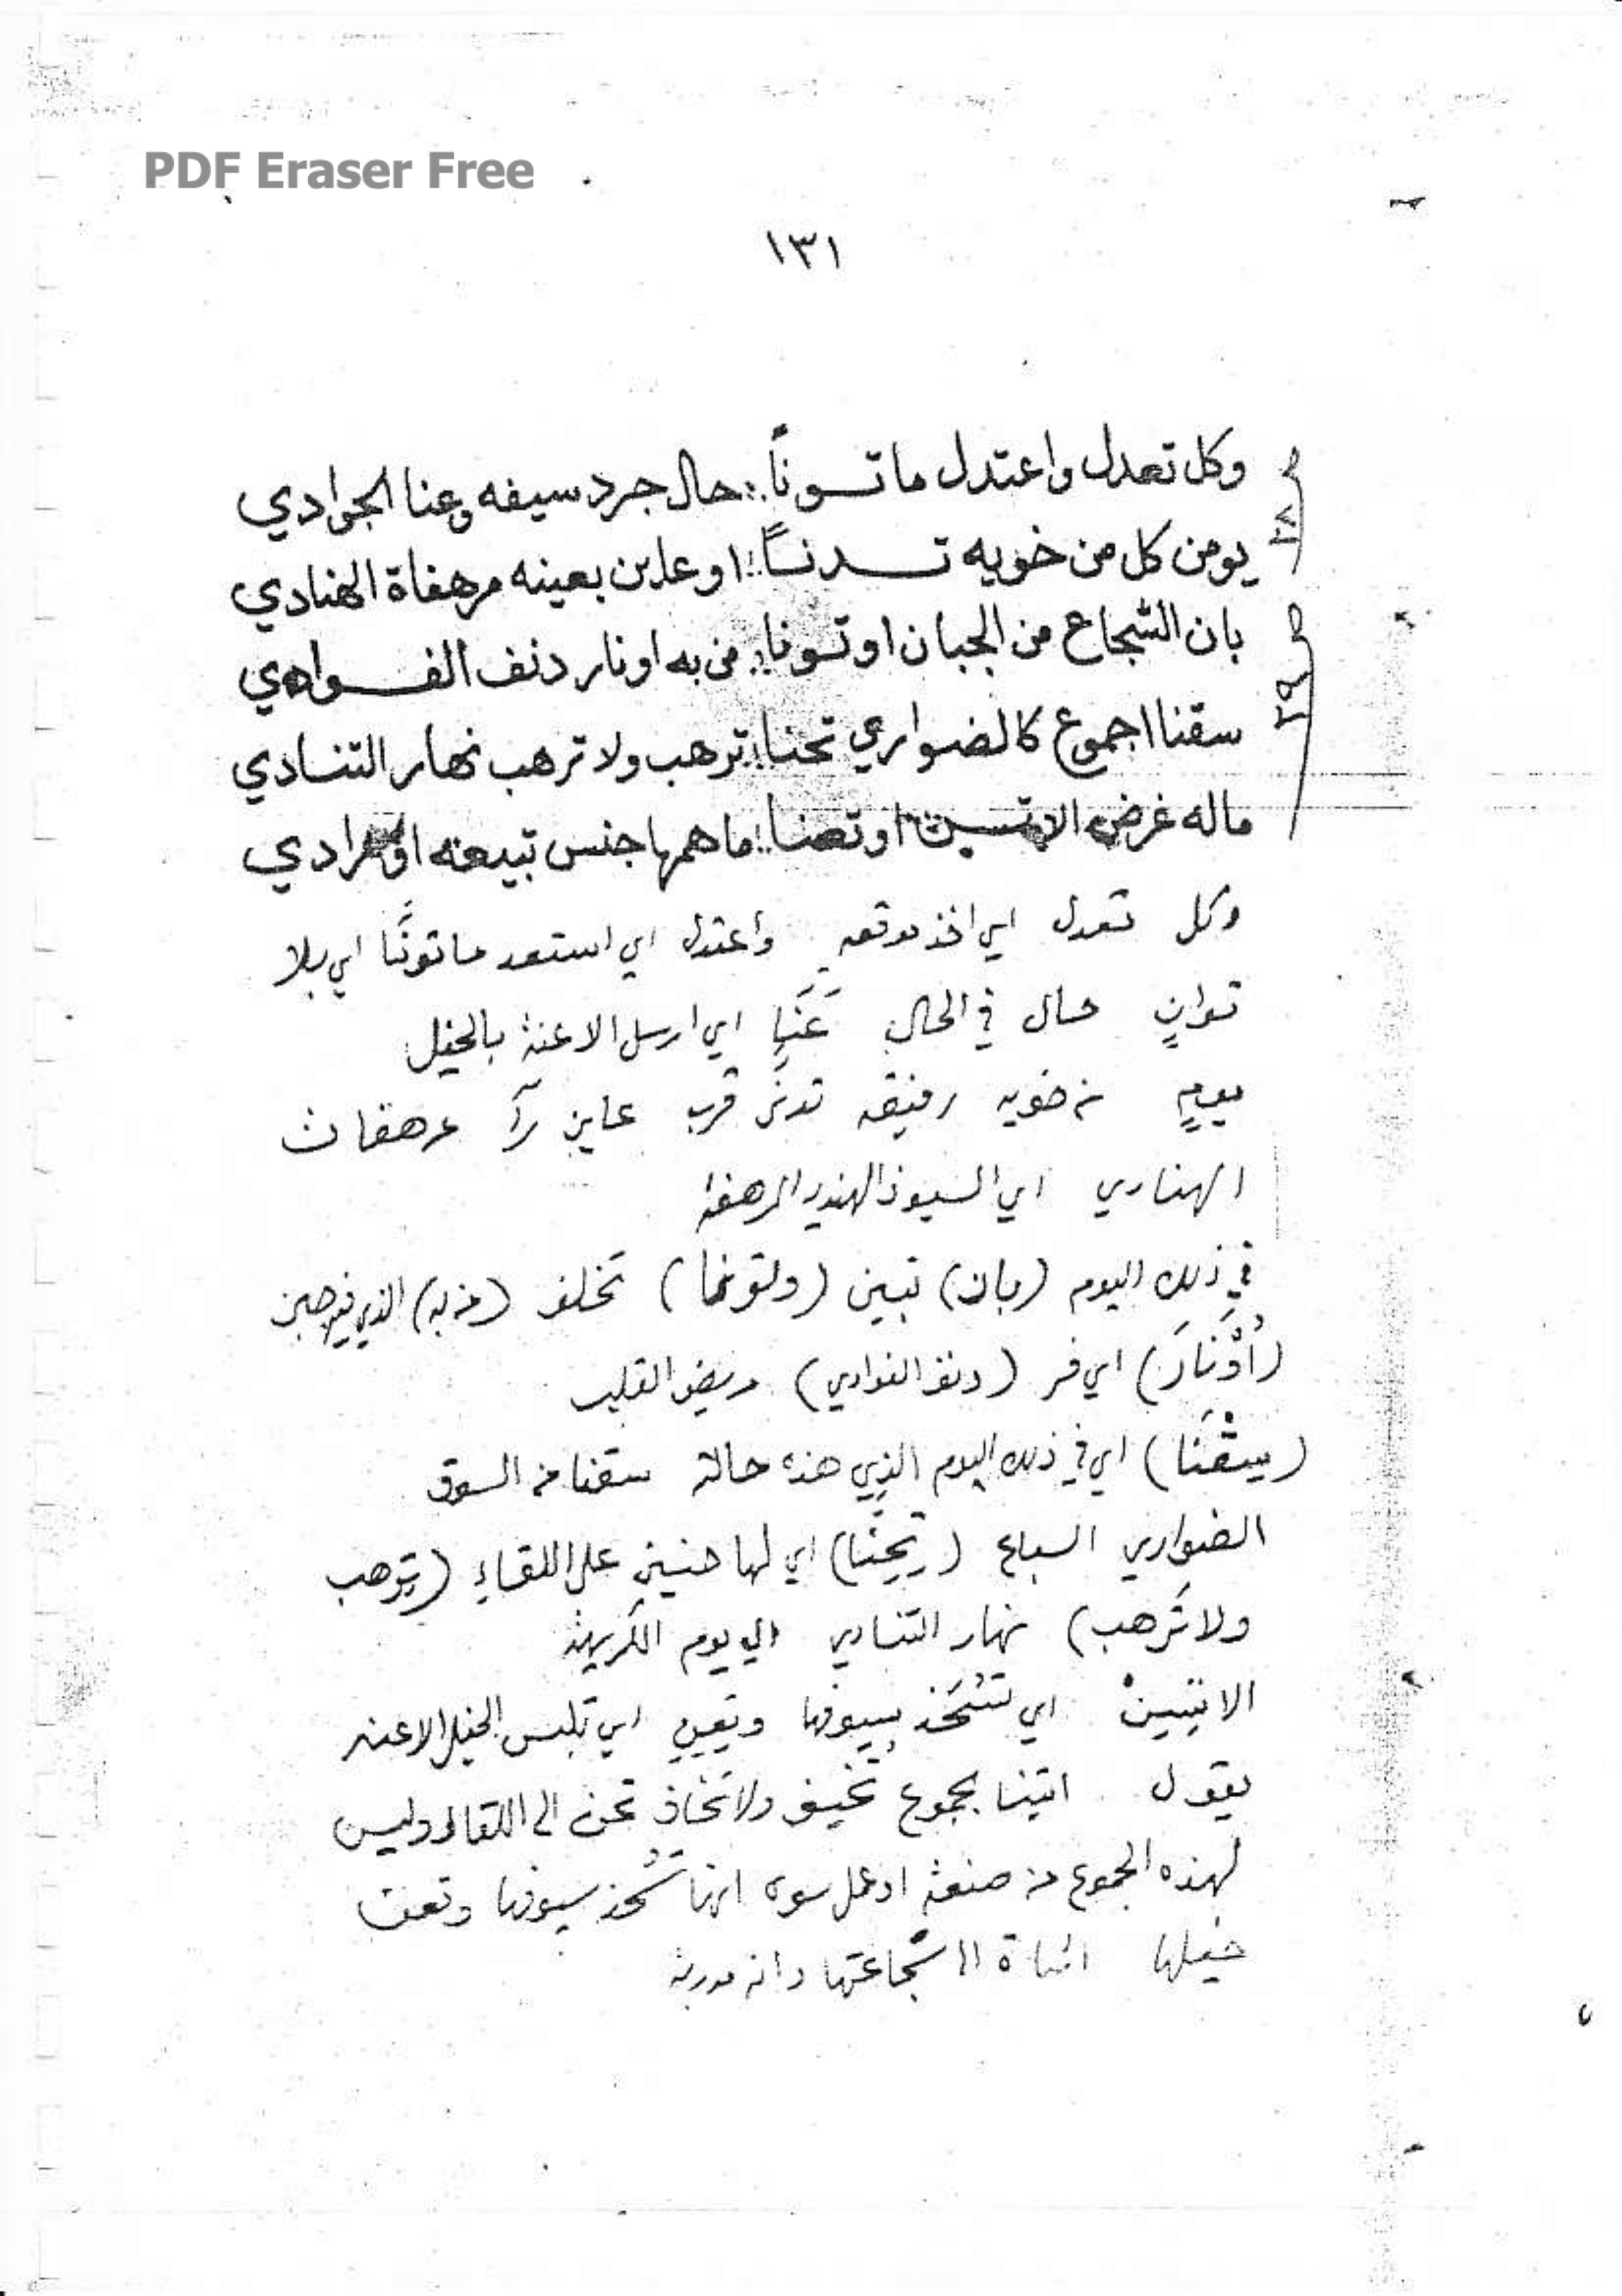 PDF Eraser Free
١٣١
وكل تعدل واعتدل ما تونّا :: حال جرد سيفه وعنا الجوادي
يومن كل من خويه تدنّا :: اوعاين بعينه مرهفاة الهنادي
بان الشجاع من الجبان اوتونا :: من به اونار دنف الفوادي
سقنا اجموع كالضواري تحنا :: ترهب ولا ترهب نهار التنادي
ماله غرض الا تسين اوتعنا :: ما همها جنس تبيعه او مرادي
وكل تعدل اي اخذ موقعه واعتدل اي استعد ما تونَّا اي بلا
توانٍ حال في الحال عَنَّا اي ارسل الاعنة بالخيل
يومٍ من خويه رفيقه تدنى قرب عاين رآ مرهفات
الهنادي اي السيوف الهندية المرهفة
في ذلك اليوم (بان) تبين (وتونا) تخلف (من به)
(أوْنَارَ) اي فر (دنف الفوادي) مريض القلب
(سِقْنَا) اي في ذلك اليوم الذي هذه حالته سقنا من السوق
الضواري السباع (تحِنَّا) اي لها حنين على اللقاء (تِرهب
ولا تَرهب) نهار التنادي اي يوم الكريهة
الا تسين اي تشحذ سيوفها وتعين اي تلبس الخيل الاعنه
يقول اتينا بجموع تخيف ولا تخاف تحن الى اللقاء وليس
لهذه الجموع من صنعة او عمل سوى انها تشحذ سيوفها وتعن
خيلها الى شجاعتها وانه مدربة